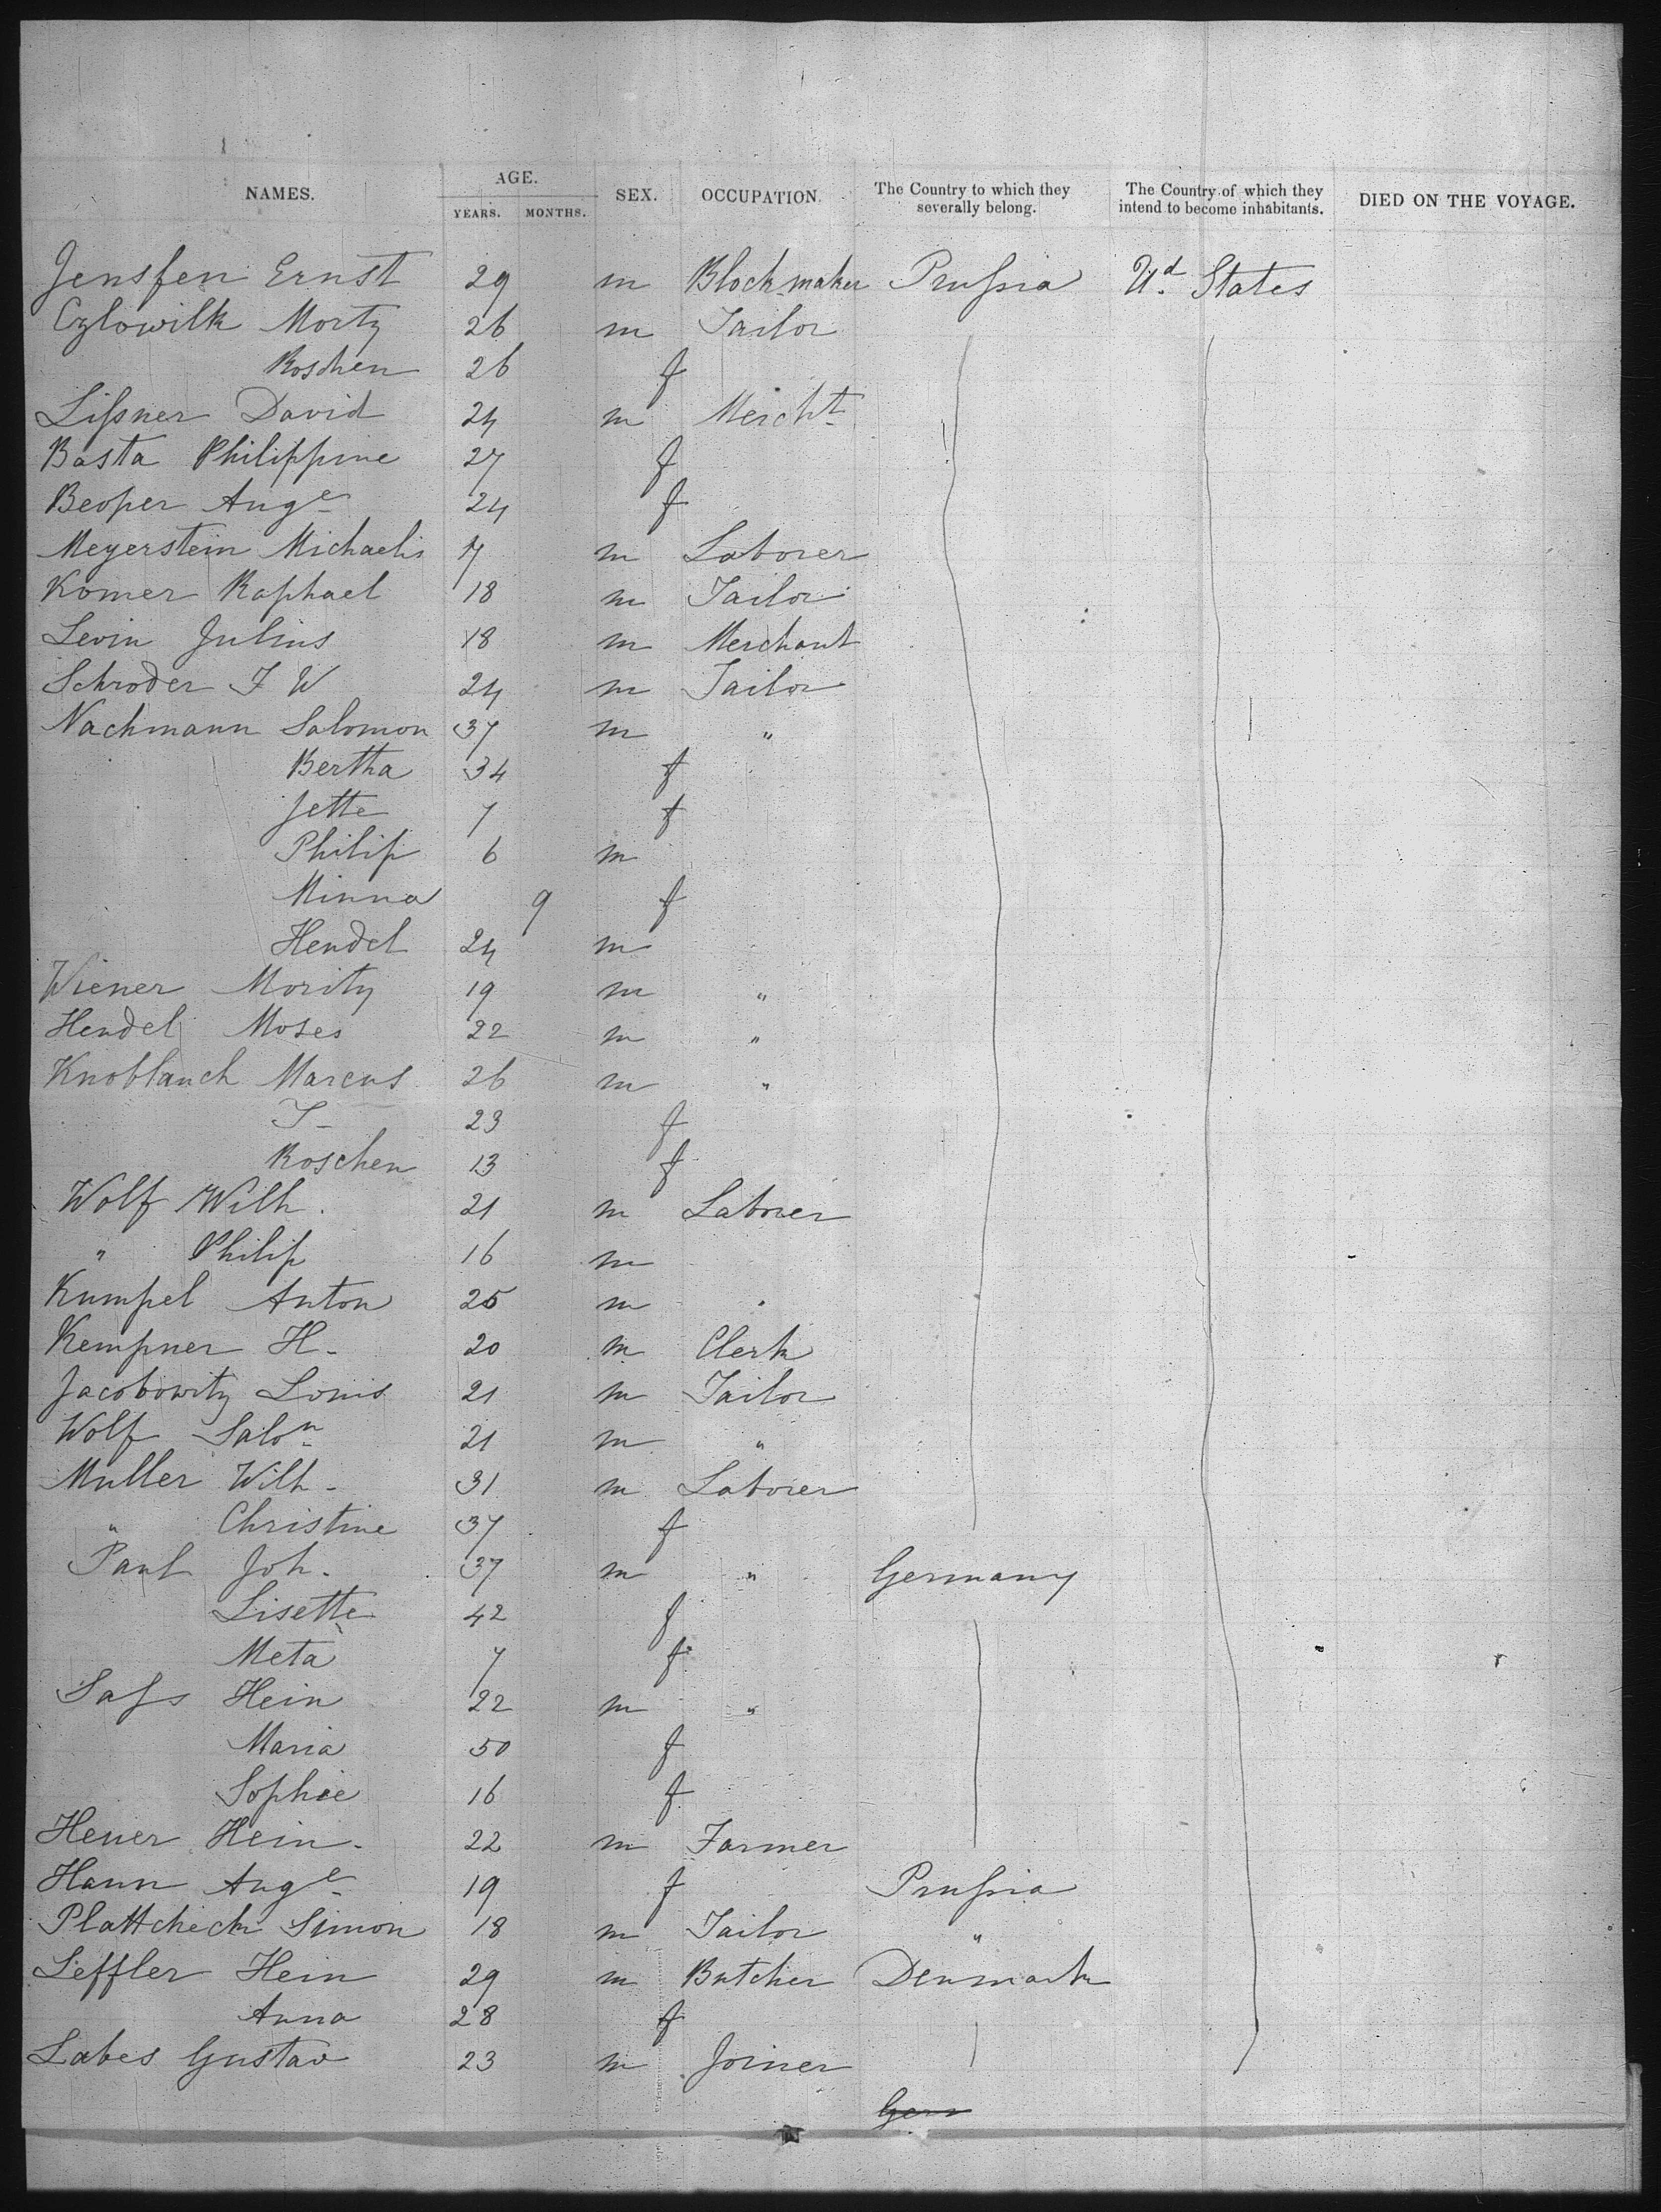 NAMES. AGE. SEX. OCCUPATION. The Country to which they severally belong. The Country of which they intend to become inhabitants. DIED ON THE VOYAGE.
YEARS. MONTHS.
Jensſen Ernst 29 m Blockmaker Pruſsia Ud. States
Czlowilk Mortz 26 m Tailor
Roschen 26 f
Liſsner David 24 m Mercht
Basta Philippine 27 f
Beoper Auge 24 f
Meyerstein Michaelis 17 m Laborer
Komer Raphael 18 m Tailor
Levin Julius 18 m Merchant
Schroder F W 24 m Tailor
Nachmann Salomon 37 m "
Bertha 34 f
Jette 7 f
Philip 6 m
Minna 9 f
Hendel 24 m
Wiener Moritz 19 m "
Hendel Moses 22 m "
Knoblauch Marcus 26 m "
23 f
Roschen 13 f
Wolf Wilh. 21 m Laborer
" Philip 16 m
Kumpel Anton 25 m
Kempner H. 20 m Clerk
Jacobowitz Louis 21 m Tailor
Wolf Salon 21 m "
Muller Wilh. 31 m Laborer
" Christine 37 f
Paul Joh. 37 m " Germany
Lisette 42 f
Meta 7 f
Saſs Hein 22 m "
Maria 50 f
Sophie 16 f
Heuer Hein. 22 m Farmer
Hann Auge 19 f Pruſsia
Simon 18 m Tailor "
Leffler Hein 29 m Butcher Denmark
Anna 28 f
Labes Gustav 23 m Joiner
Ger